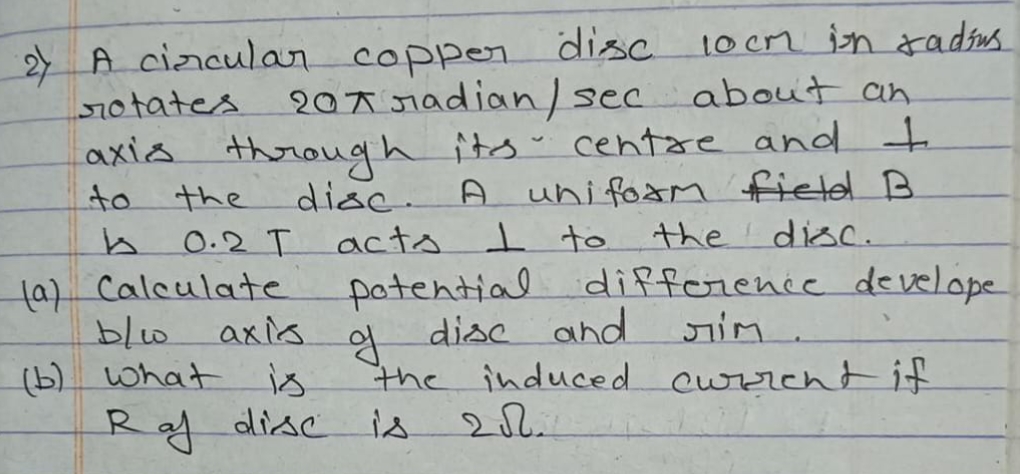 2) A circular copper disc 10cm in radius
rotates 20π radian/sec about an
axis through its centre and ⊥
to the disc. A uniform field B
is 0.2 T acts ⊥ to the disc.
(a) Calculate potential difference develope
b/w axis of disc and rim.
(b) What is the induced current if
R of disc is 2Ω.